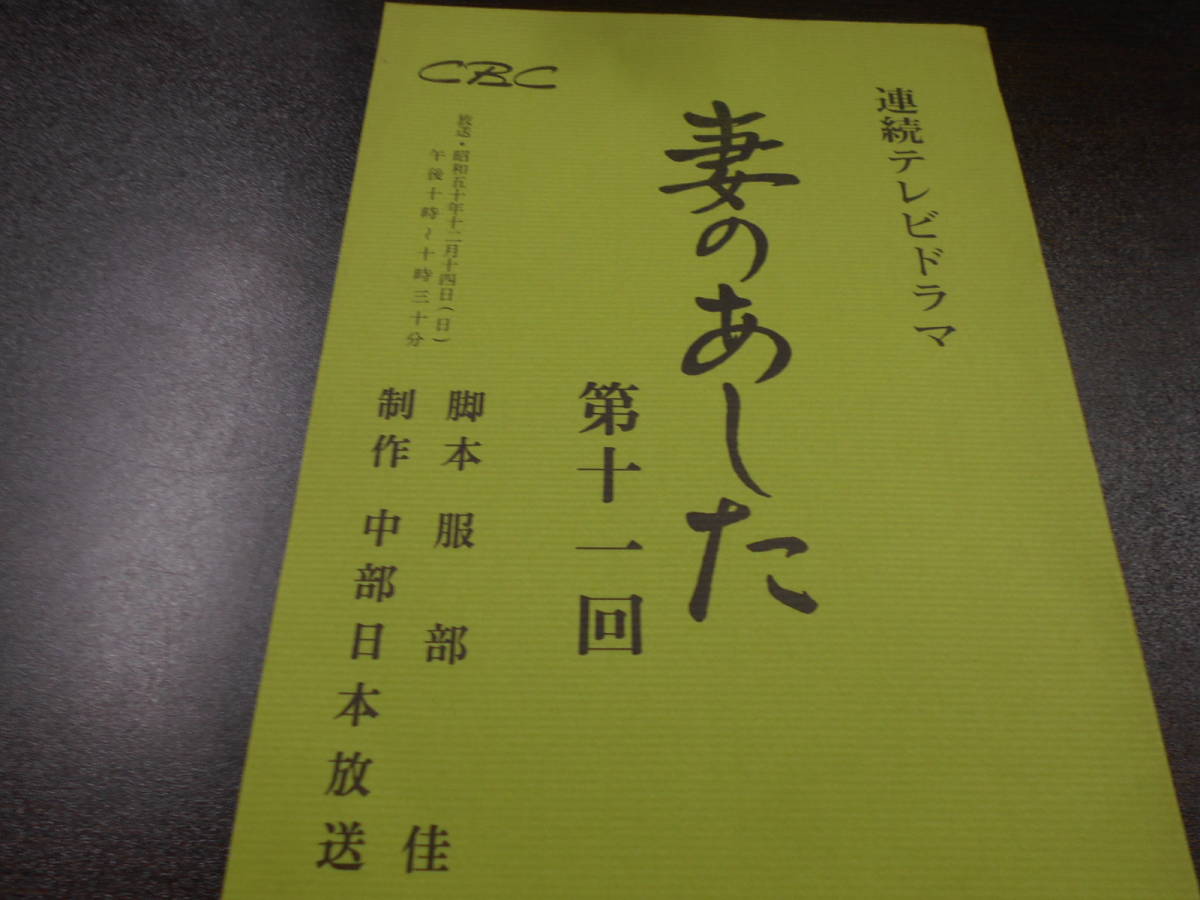 連続テレビドラマ
妻のあした
第十一回
CBC
放送・昭和五十年十二月十四日(日)
午後十時~十時三十分
脚本 服部 佳
制作 中部日本放送